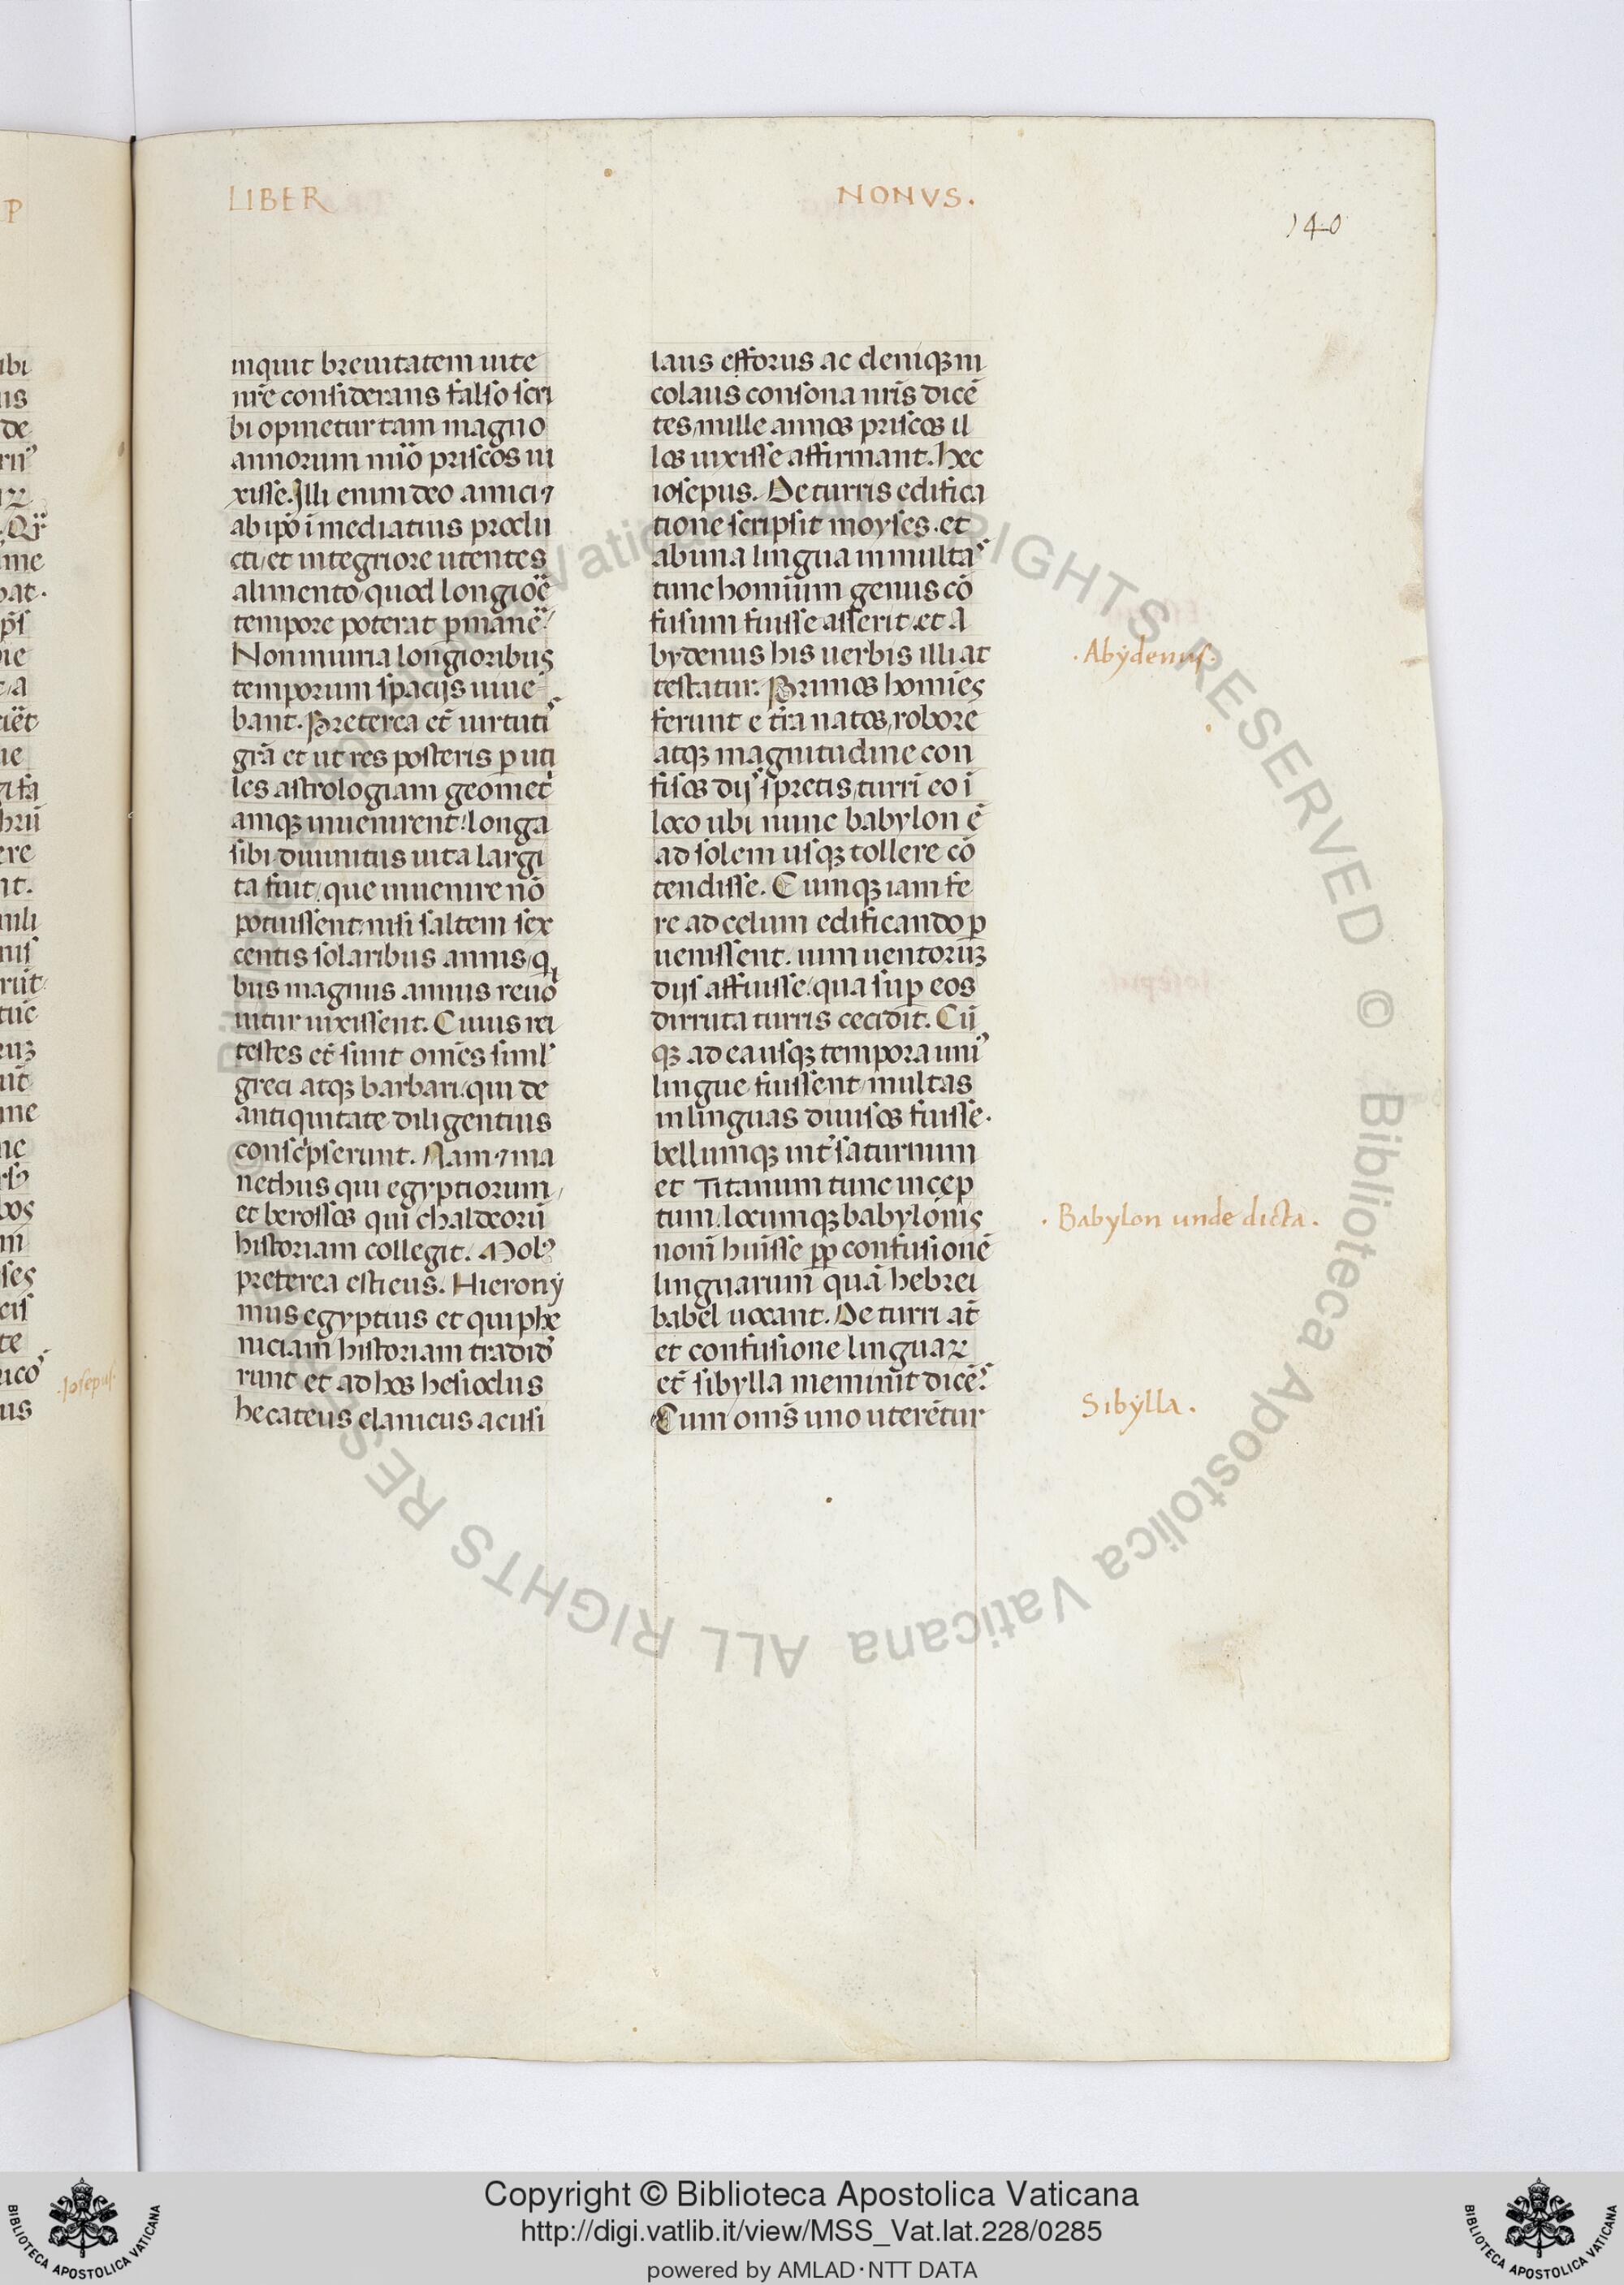 LIBER NONVS.
140
inquit breuitatem uite
nr̄e considerans falso scri
bi opinetur tam magno
annorum nūo priscos ui
xisse. Illi enim deo amici ⁊
ab ip̄o īmediatius produ
cti et integriore utentes
alimento quod longiōe
tempore poterat ꝑmanē
Non iniuria longioribus
temporum spacijs uiue
bant. Preterea et̄ uirtutis
grā et ut res posteris ꝑ uti
les astrologiam geomet
amqꝫ inuenirent: longa
sibi diuinitus uita largi
ta fuit, que inuenire nō
potuissent nisi saltem sex
centis solaribus annis, q
bus magnus annus reuo
uitur uixissent. Cuius rei
testes et̄ sunt omēs siml
greci atqꝫ barbari, qui de
antiquitate diligentius
conscͥpserunt. Nam ⁊ ma
nethus qui egyptiorum,
et berossos qui chaldeorū
historiam collegit. Molꝰ
preterea estieus. Hierony
mus egyptius et qui phe
niciam historiam tradid
runt et ad hos hesiodus
hecateus elanicus acusi
laus efforus ac deniqꝫ ni
colaus consona nr̄is dicē
tes, mille annos priscos il
los uixisse affirmant. hec
iosepus. De turris edifica
tione scripsit moyses. et
ab una lingua in multas
tunc hominum genus cō
fusum fuisse asserit. et A
bydenus his uerbis illi at
testatur: Primos homies
ferunt e tr̄a natos, robore
atqꝫ magnitudine con
fisos dijs spretis, turrī eo ī
loco ubi nunc babylon ē
ad solem usqꝫ tollere cō
tendisse. Cumqꝫ iam fe
re ad celum edificando ꝑ
uenissent. uim uentorūꝫ
dijs affuisse, qua suꝑ eos
dirruta turris cecidit. Cū
qꝫ ad ea usqꝫ tempora uniꝰ
lingue fuissent, multas
in linguas diuisos fuisse.
bellumqꝫ int̄ saturnum
et Titanum tunc incep
tum. locumqꝫ babylonis
nom̄ huisse ꝓꝑ confusionē
linguarum quā hebrei
babel uocant. De turri at̄
et confusione linguaꝝ
et̄ sibylla meminit dicēs
Cum om̄s uno uterētur
. Abydenus.
. Babylon unde dicta .
Sibylla .
.Iosepus.
Copyright © Biblioteca Apostolica Vaticana
http://digi.vatlib.it/view/MSS_Vat.lat.228/0285
powered by AMLAD·NTT DATA
BIBLIOTECA APOSTOLICA VATICANA
BIBLIOTECA APOSTOLICA VATICANA
© Biblioteca Apostolica Vaticana ALL RIGHTS RESERVED © Biblioteca Apostolica Vaticana ALL RIGHTS RESERVED